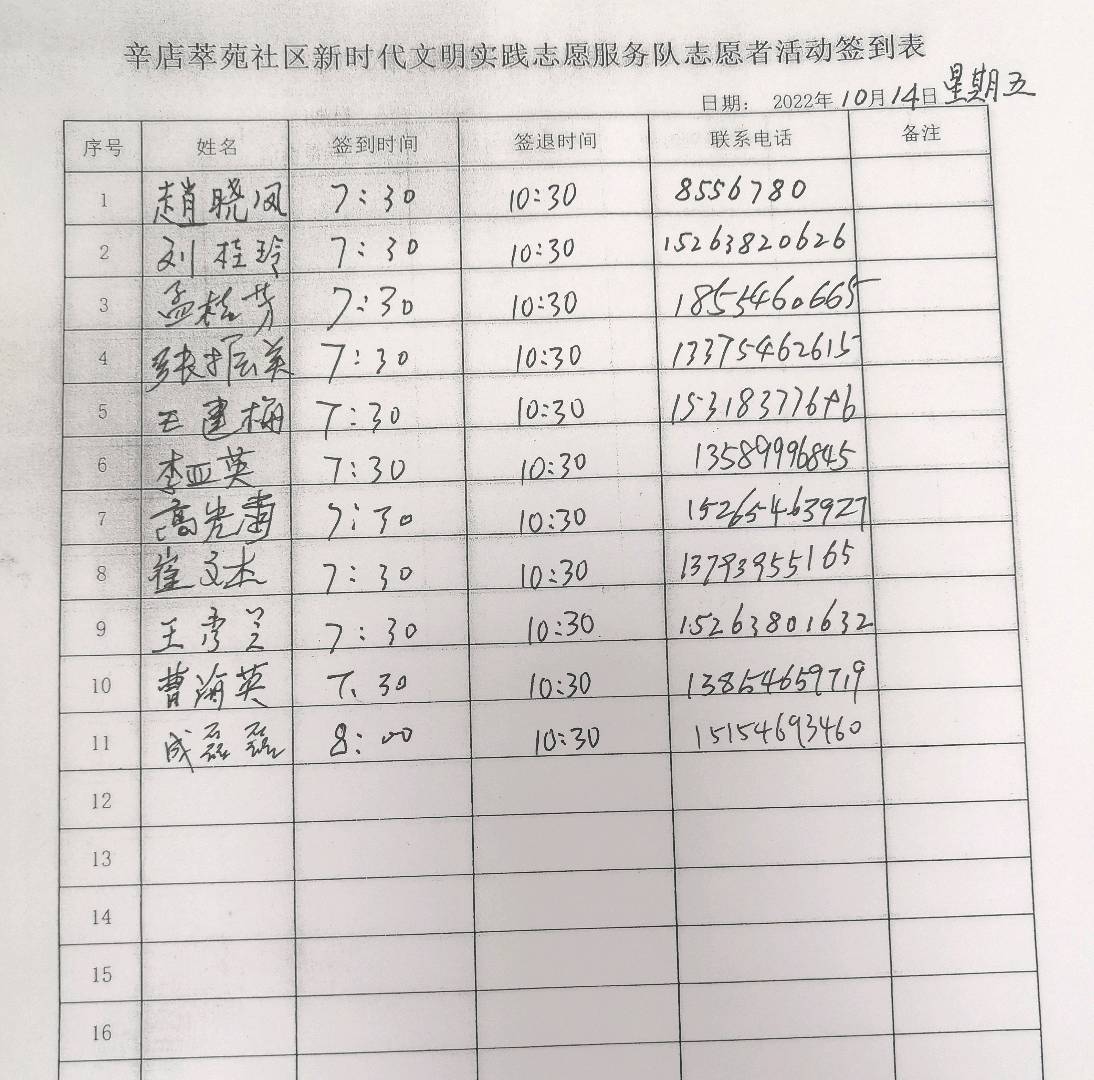 辛店萃苑社区新时代文明实践志愿服务队志愿者活动签到表
日期： 2022年10月14日 星期五
序号 姓名 签到时间 签退时间 联系电话 备注
1 赵晓凤 7:30 10:30 8556780
2 刘桂玲 7:30 10:30 15263820626
3 孟松芳 7:30 10:30 1855460665
4 张振英 7:30 10:30 13375462615
5 王建梅 7:30 10:30
6 李亚英 7:30 10:30 13589996845
7 7:30 10:30 15265463927
8 崔文杰 7:30 10:30 13793955165
9 王彦兰 7:30 10:30 15263801632
10 曹海英 7:30 10:30 13854659719
11 成磊磊 8:00 10:30 15154693460
12
13
14
15
16